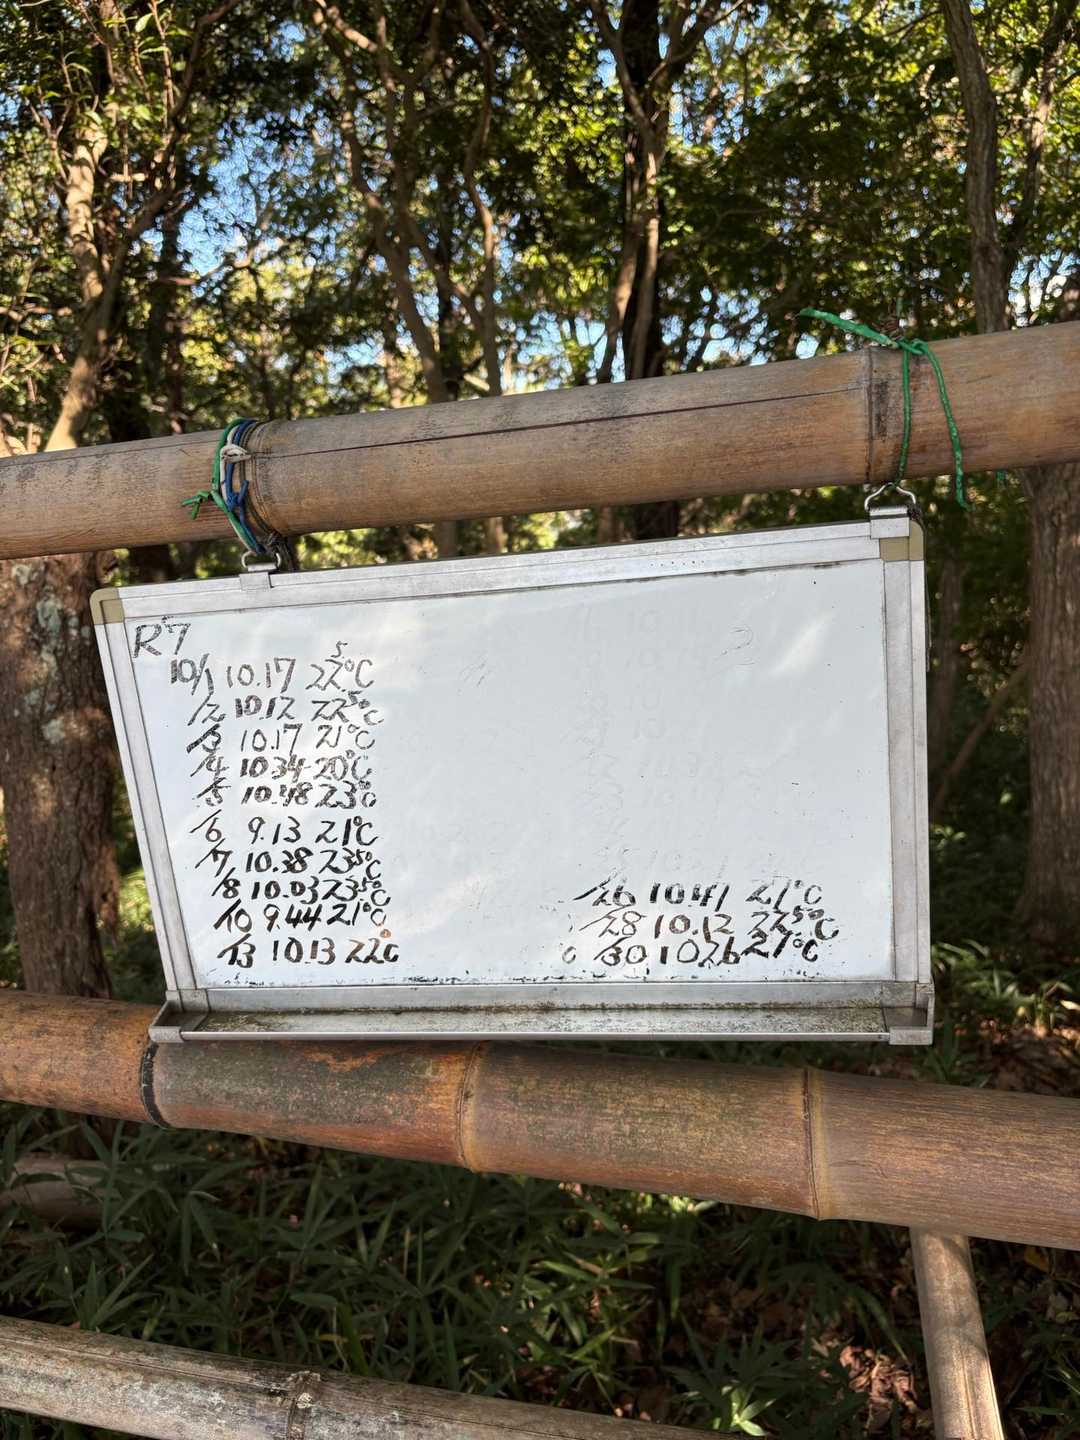 R7
10/1 10.17 22.5℃
/2 10.12 22.5℃
/3 10.17 21℃
/4 10.34 20℃
/5 10.48 23℃
/6 9.13 21℃
/7 10.38 23.5℃
/8 10.03 23.5℃
/10 9.44 21℃
/13 10.13 22℃
/26 10.41 27℃
/28 10.12 22.5℃
/30 10.26 27℃